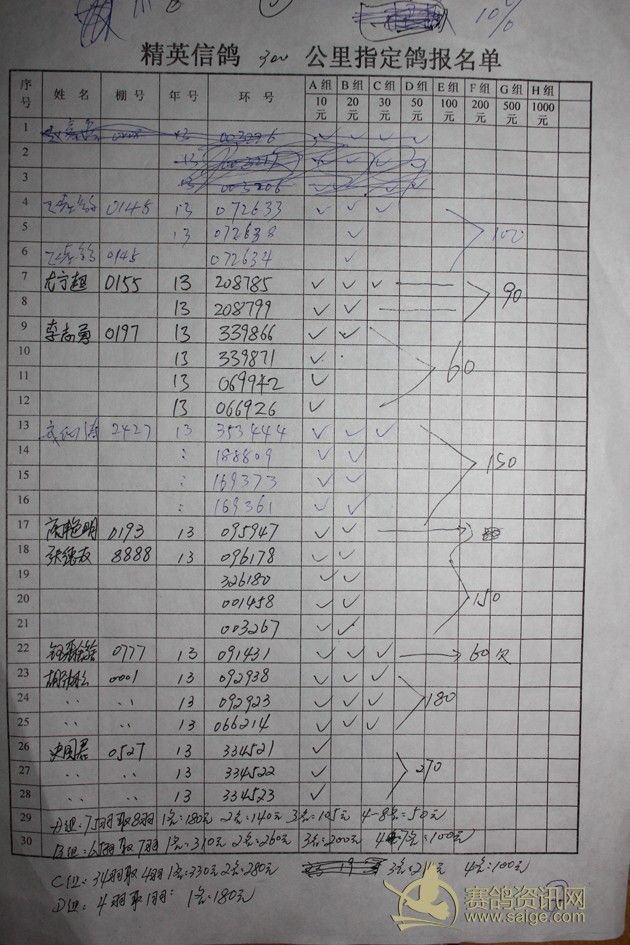 10%
精英信鸽 300 公里指定鸽报名单
序号 姓名 棚号 年号 环号 A组 B组 C组 D组 E组 F组 G组 H组
10元 20元 30元 50元 100元 200元 500元 1000元
1 13 003296 ✓ ✓ ✓ ✓
2 13
3 13 003206 ✓ ✓ ✓ ✓
4 0145 13 072633 ✓ ✓ ✓
5 13 072638 ✓ 100
6 0145 072634 ✓
7 0155 13 208785 ✓ ✓ ✓
8 13 208799 ✓ ✓ 90
9 李尚勇 0197 13 339866 ✓ ✓
10 13 339871 ✓ 60
11 13 069942 ✓
12 13 066926 ✓
13 2427 13 353444 ✓ ✓ ✓
14 : 188809 ✓ ✓ 150
15 : 169373 ✓ ✓
16 : 169361 ✓ ✓
17 0193 13 095947 ✓ ✓
18 张德友 8888 13 096178 ✓ ✓
19 326180 ✓ ✓
20 001458 ✓ ✓ 150
21 003267 ✓ ✓
22 0777 13 091431 ✓ ✓ ✓ 60
23 0001 13 092938 ✓ ✓ ✓
24 〃 〃 13 092923 ✓ ✓ ✓ 180
25 〃 〃 13 066214 ✓ ✓ ✓
26 史国君 0527 13 334521 ✓
27 〃 〃 13 334522 ✓ 270
28 〃 〃 13 334523 ✓
29 A组:75羽取8羽 1名:180元 2名:140元 3名:105元 4-8名:50元
30 B组:65羽取7羽 1名:310元 2名:260元 3名:200元 4-7名:100元
C组:34羽取4羽 1名:330元 2名:280元 4名:100元
D组:4羽取1羽: 1名:180元
赛鸽资讯网
www.saige.com